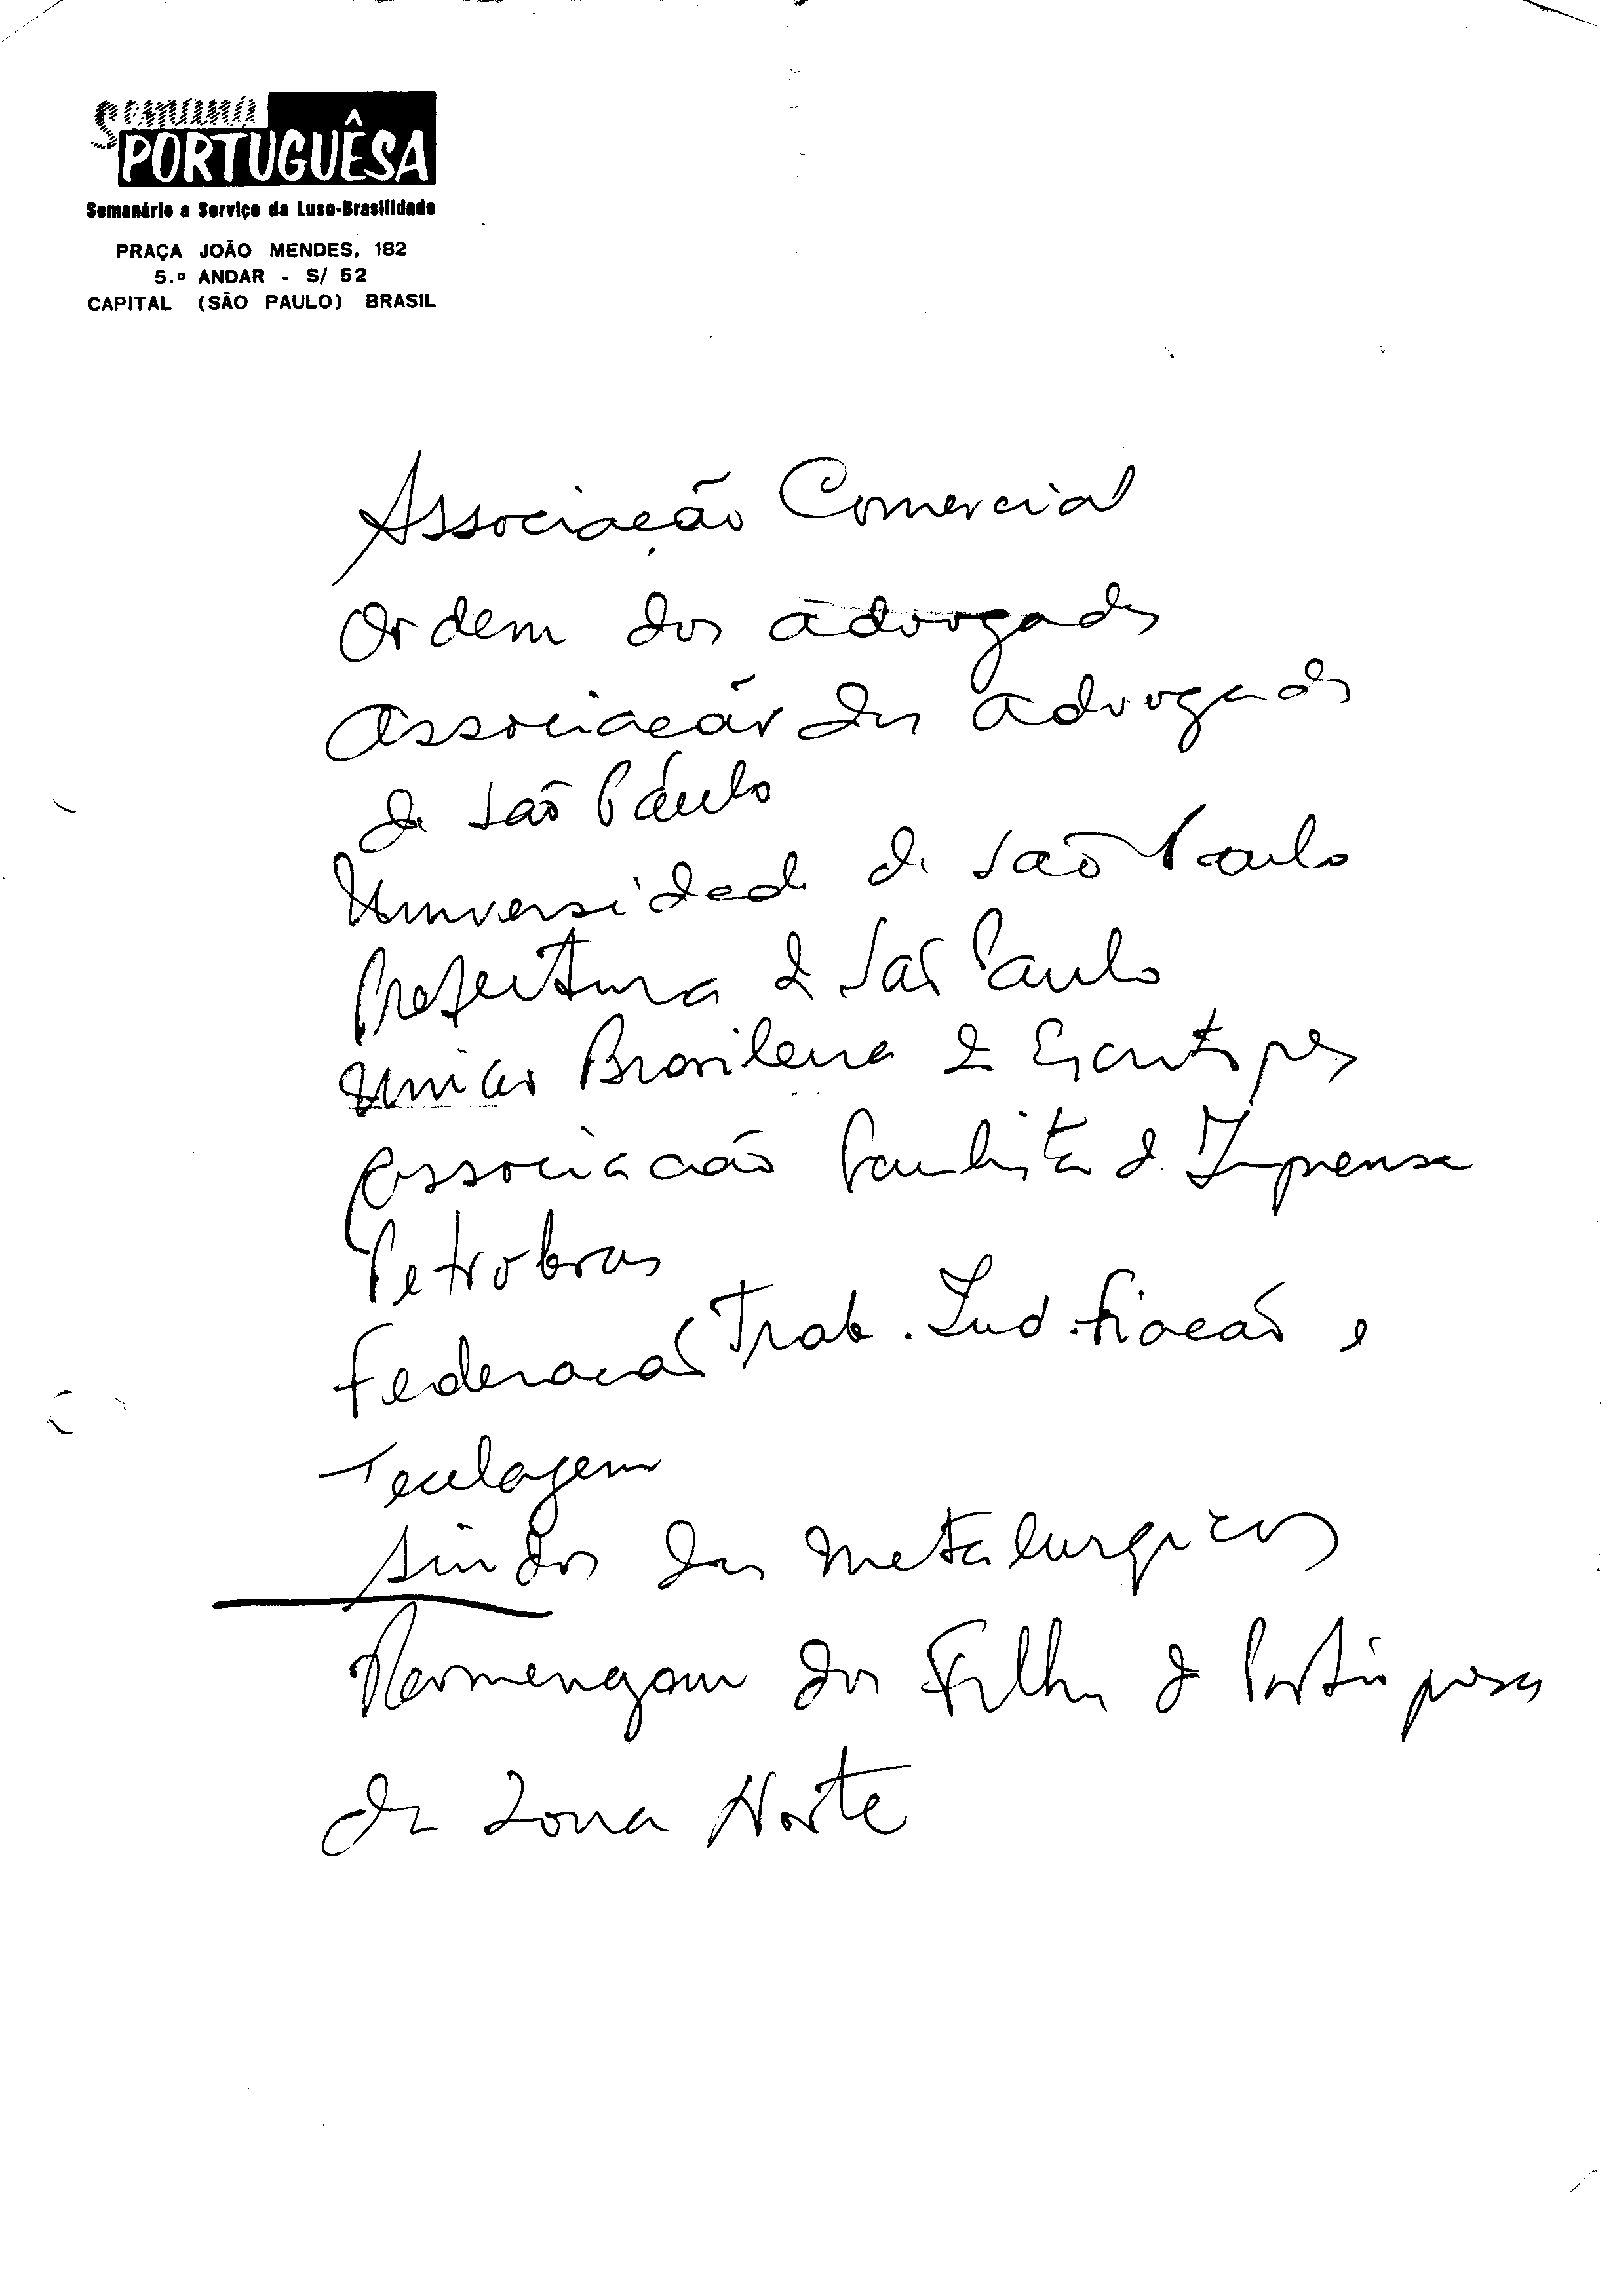 Semana
PORTUGUÊSA
Semanário a Serviço da Luso-Brasilidade
PRAÇA JOÃO MENDES, 182
5.º ANDAR - S/ 52
CAPITAL (SÃO PAULO) BRASIL
Associação Comercial
Ordem dos advogados
Associação dos advogados
de São Paulo
Universidade de São Paulo
Prefeitura de São Paulo
União Brasileira de Escritores
Associação Paulista de Imprensa
Petrobras
Federação Trab. Ind. Fiação e
Tecelagem
dos Metalurgicos
dos Filhos de Portugueses
da Zona Norte